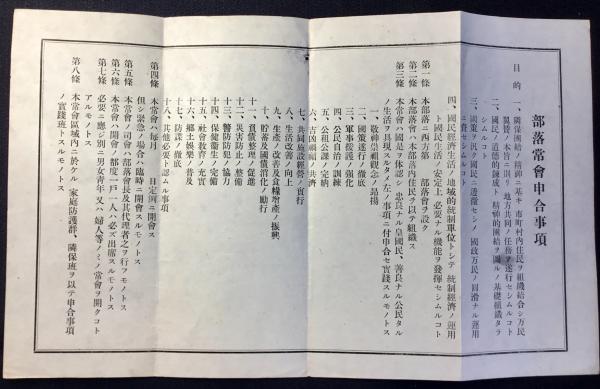 部落常會申合事項
目的
一、隣保團結ノ精神ニ基キ市町村內住民ヲ組織結合シ万民
翼贊ノ本旨ニ則リ地方共同ノ任務ヲ遂行セシムルコト
二、國民ノ道德的鍊成ト精神的團結ヲ圖ルノ基礎組織タラ
シムルコト
三、國策ヲ汎ク國民ニ透徹セシメ國政万民ノ圓滑ナル運用
ニ資セシムルコト
四、國民經濟生活ノ地域的統制單位トシテ統制經濟ノ運用
ト國民生活ノ安定上必要ナル機能ヲ發揮セシムルコト
第一條 本部落ニ西方第 部落會ヲ設ク
第二條 本部落會ハ本部落內住民ヲ以テ組織ス
第三條 本常會ハ國是ヲ体認シ忠良ナル皇國民、善良ナル公民タル
ノ生活ヲ具現スルタメ左ノ事項ニ付申合セ實踐スルモノトス
一、敬神崇祖觀念ノ昂揚
二、國策遂行ノ徹底
三、軍事援護ノ强化
四、公民自治ノ訓練
五、公租公課ノ完納
六、吉凶禍福ノ共濟
七、共同施設經營ノ實行
八、生活改善ノ向上
九、生產ノ改善及食糧增產ノ振興
十、貯蓄及國債消化ノ勵行
十一、資源愛護ノ促進
十二、災害防止ノ整備
十三、警防防犯ノ協力
十四、保健衞生ノ完備
十五、社會敎育ノ充實
十六、鄕土娛樂ノ普及
十七、防諜ノ徹底
十八、其他必要ト認ムル事項
第四條 本常會ハ每月 日定例ニ開會ス
但シ緊急ノ場合ハ臨時ニ開會スルモノトス
第五條 本常會ノ司會ハ部落會長及其代理者之ヲ行フモノトス
第六條 本常會ハ開會ノ都度一戶一人ハ必ズ出席スルモノトス
第七條 必要ニ應ジ別ニ男女靑年又ハ婦人等ノミノ常會ヲ開クコト
アルモノトス
第八條 本常會區域內ニ於ケル家庭防護群、隣保班ヲ以テ申合事項
ノ實踐班トスルモノトス